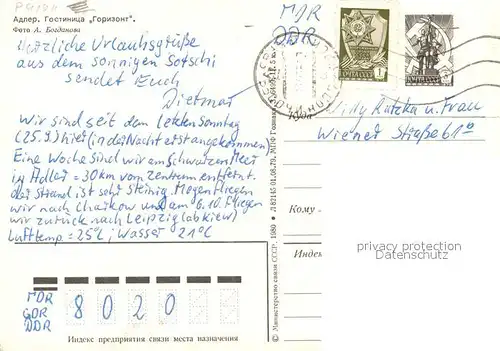 Адлер. Гостиница „Горизонт".
Фото А. Богданова
Herzliche Urlaubsgrüße
aus dem sonnigen Sotschi
sendet Euch
Dietmar
Wir sind seit dem letzten Sonntag
(25.9.) hier (in der Nacht erst angekommen)
Eine Woche sind wir am Schwarzen Meer
in Adler = 30km vom Zentrum entfernt.
der Strand ist sehr steinig. Morgen fliegen
wir nach Charkow und am 6.10. fliegen
wir zurück nach Leipzig (ab Kiew)
Lufttemp = 25°C; Wasser 21°C
MDR
GDR
DDR
8020
Индекс предприятия связи места назначения
© Министерство связи СССР. 1980
Л 82145 01.08.79. МПФ Гознака.
MDR
DDR
ПОЧТА СССР
1
ПОЧТА СССР
Куда
Willy Kutzka u. Frau
Wiener Straße 61a
Кому
privacy protection
Datenschutz
Индекс